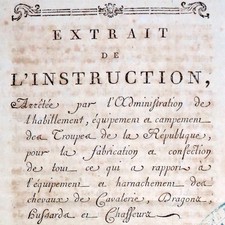 EXTRAIT
DE
L'INSTRUCTION,
Arrêtée par l'Administration de
l'habillement, équipement et campement
des Troupes de la République,
pour la fabrication et confection
de tout ce qui a rapport à
l'équipement et harnachement des
chevaux de Cavalerie, Dragons,
Hussards et Chasseurs